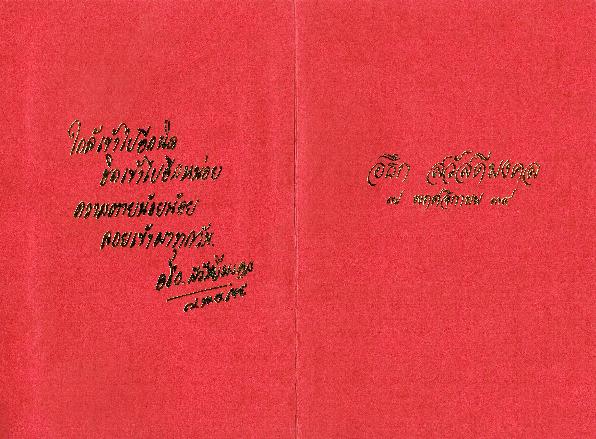 ใกล้เข้าไปอีกนิด
ชิดเข้าไปอีกหน่อย
ความตายน้อยน้อย
ลอยเข้ามาทุกวัน.
อธึก สวัสดีมงคล
๗ พฤศจิกายน ๓๔